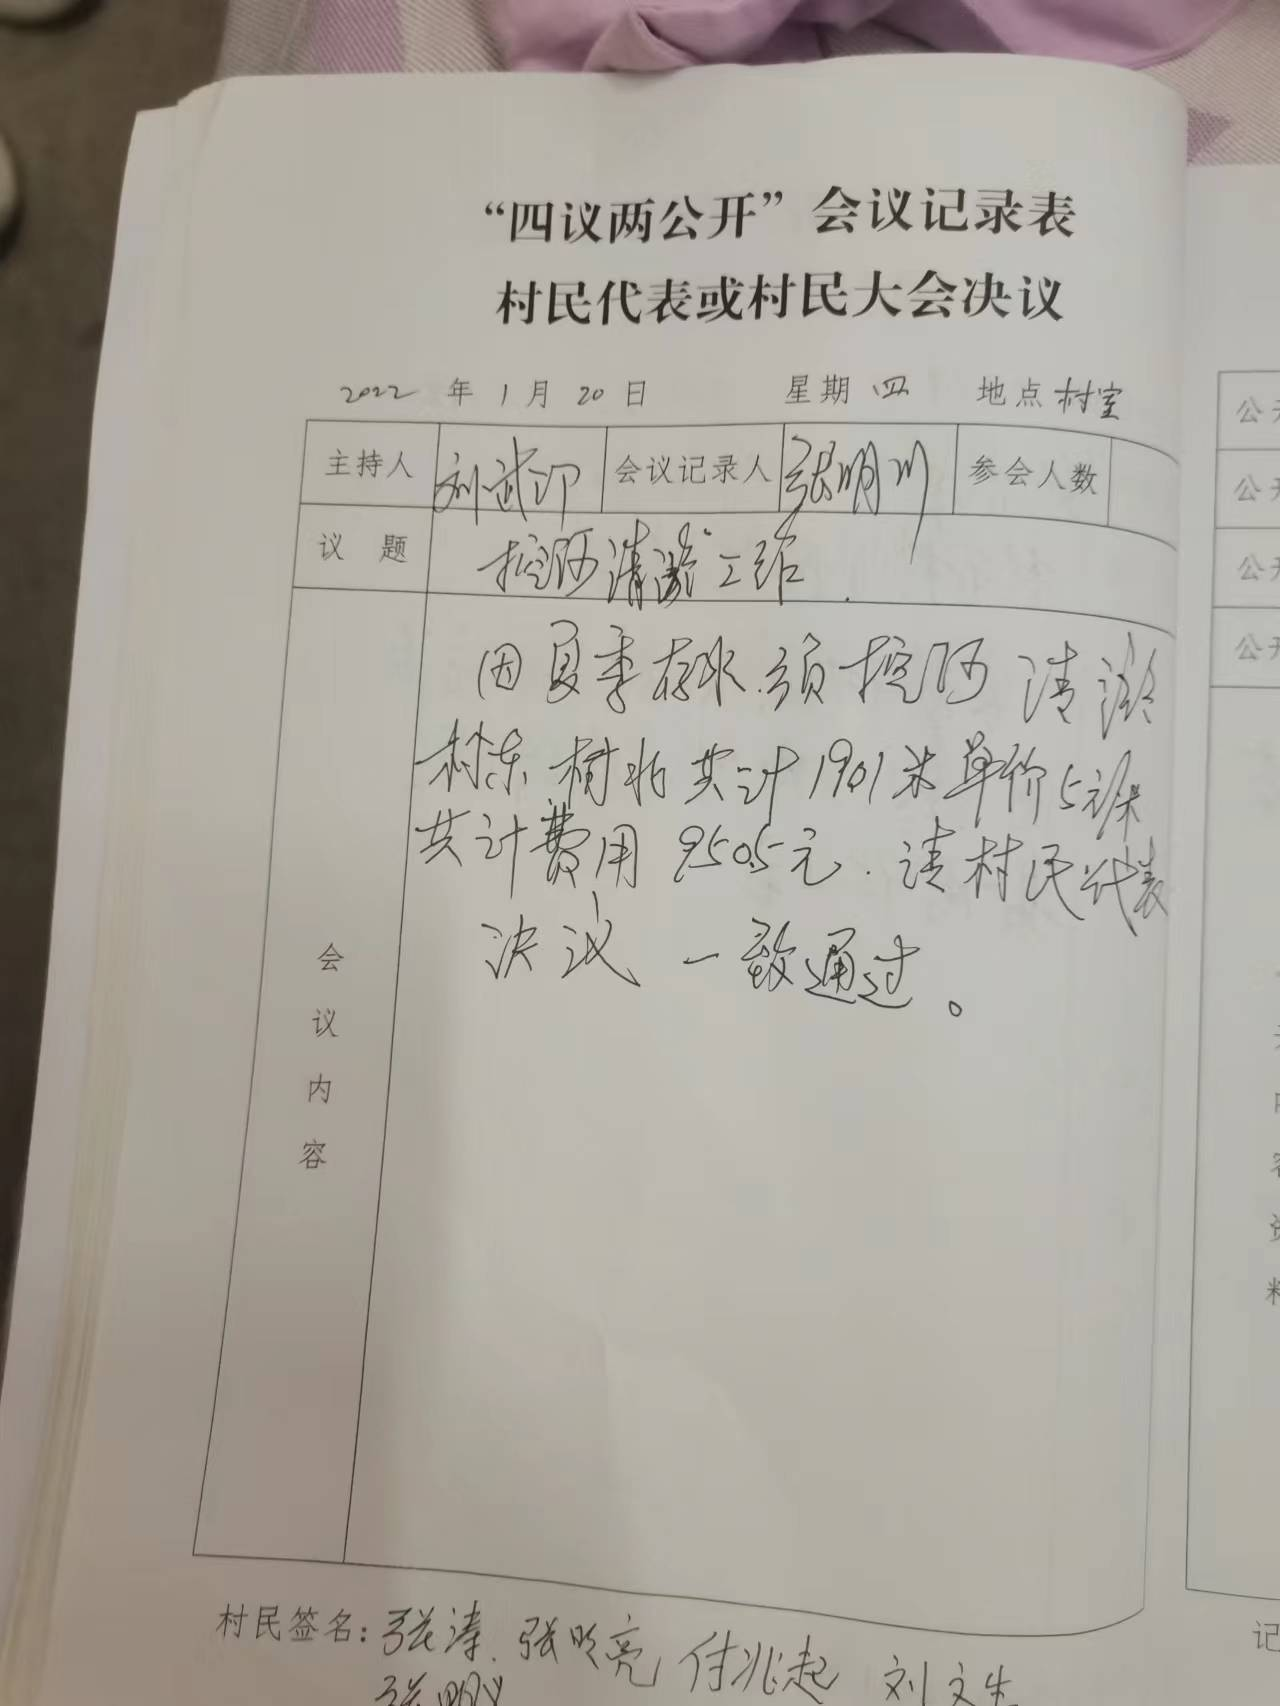 “四议两公开”会议记录表
村民代表或村民大会决议
2022 年 1 月 20 日 星期 四 地点 村室
主持人 刘武印 会议记录人 张明川 参会人数
议 题 挖沟清淤工作.
因夏季存水.须挖沟清淤
村东 树北 共计1901米单价5元/米
共计费用9505元.请村民代表
决议 一致通过。
会
议
内
容
村民签名：张涛.张明亮 付兆起 刘文生
张明义
公开
公开
公开
公开
内
容
资
料
记